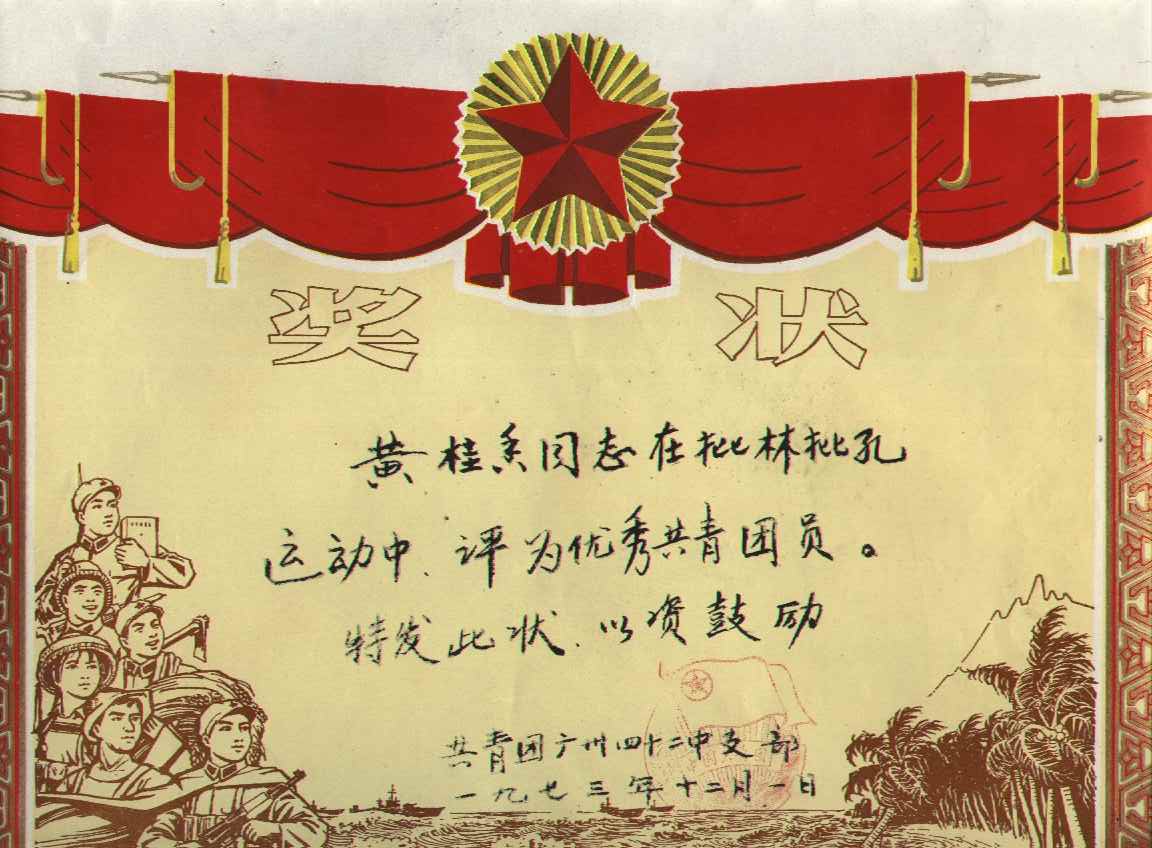 奖状
黄桂香同志在批林批孔
运动中、评为优秀共青团员。
特发此状、以资鼓励
共青团广州四十二中支部
一九七三年十二月一日